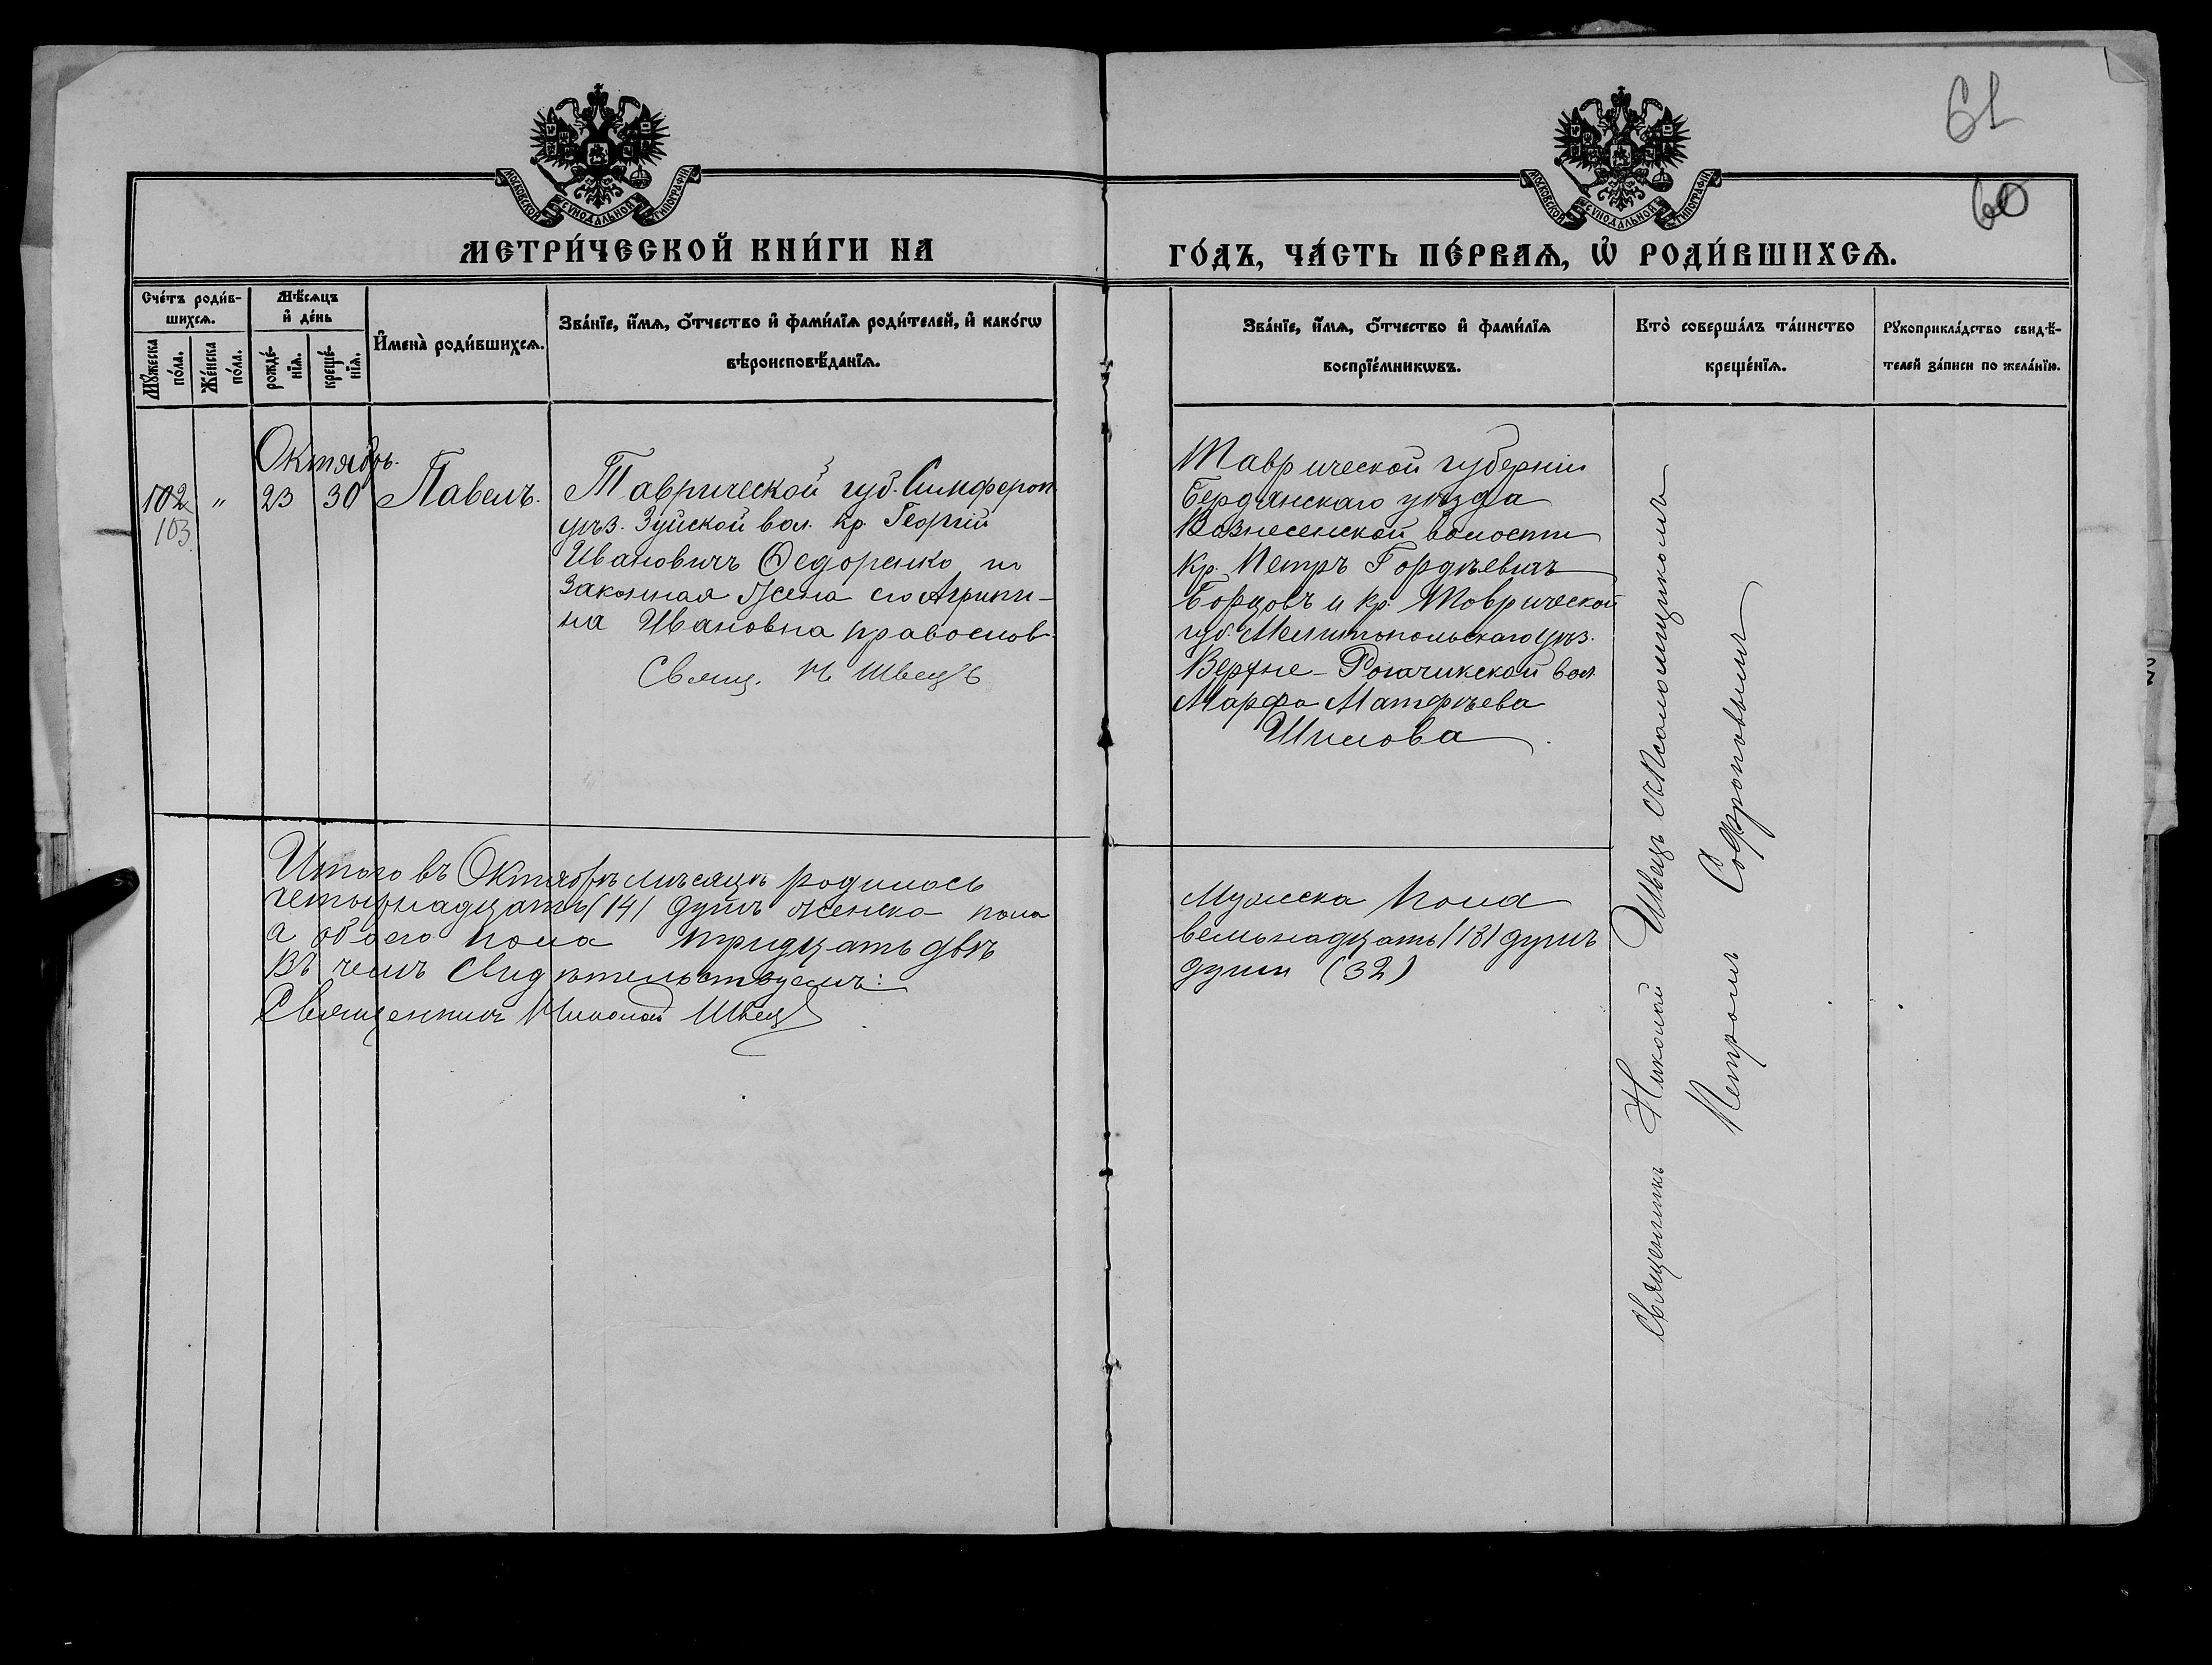 61
60
МОСКОВСКОЙ СѴНОДАЛЬНОЙ ТИПОГРАФІИ
МОСКОВСКОЙ СѴНОДАЛЬНОЙ ТИПОГРАФІИ
МЕТРИ́ЧЕСКОЙ КНИ́ГИ НА
ГО́ДЪ, ЧА́СТЬ ПЕ́РВАѦ, Ѡ҆ РОДИ́ВШИХСѦ.
Сче́тъ роди́в-
шихсѧ.
Мѣ́сѧцъ
и҆ де́нь
Мꙋ́жеска
по́ла.
Же́нска
по́ла.
рожде́-
нїѧ.
креще́-
нїѧ.
И҆мена̀ роди́вшихсѧ.
Зва́нїе, и҆́мѧ, ѻ҆́тчество и҆ фами́лїѧ роди́телей, и҆ како́гѡ
вѣроисповѣ́данїѧ.
Зва́нїе, и҆́мѧ, ѻ҆́тчество и҆ фами́лїѧ
воспрїе́мникѡвъ.
Кто̀ соверша́лъ та́инство
креще́нїѧ.
Рꙋкоприкла́дство свидѣ́-
телей за́писи по жела́нїю.
Октябрь.
102 " 23 30 Павелъ.
103
Таврической губ. Симфероп.
уѣз. Зуйской вол. кр. Георгій
Ивановичъ Ѳедоренко и
законная жена его Агрипи-
на Ивановна православ.
Свящ. Н Швецъ
Таврической губерніи
Бердянскаго уѣзда
Вознесенской волости
кр. Петръ Гордѣевичъ
Борцовъ и кр. Таврической
губ. Мелитопольскаго уѣз.
Верхне-Рогачикской вол.
Марфа Матфѣева
Шилова
Священникъ Николай Швецъ съ псаломщикомъ
Петромъ Софроновымъ
Итого въ Октябрѣ мѣсяцѣ родилось
четырнадцать (14) душъ женска пола
а обоего пола тридцать двѣ
Въ чемъ свидѣтельствуемъ:
Священникъ Николай Швецъ
Мужеска пола
вемьнадцать (18) душъ
души (32)